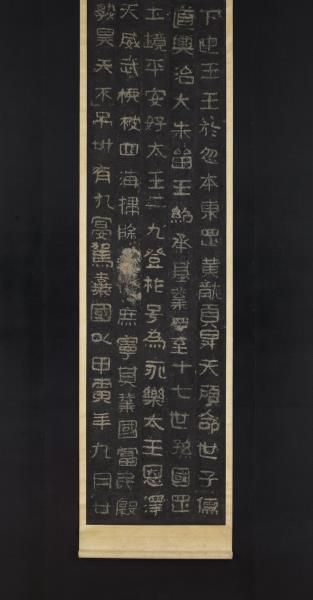 下迎王王於忽本東罡黃龍頁昇天顧命世子儒
道興治大朱留王紹承基業遝至十七世孫國罡
土境平安好太王二九登祚号為永樂太王恩澤
天威武振被四海掃除庶寧其業國富民殷
熟昊天不弔卅有九寔駕棄國以甲寅年九月廿